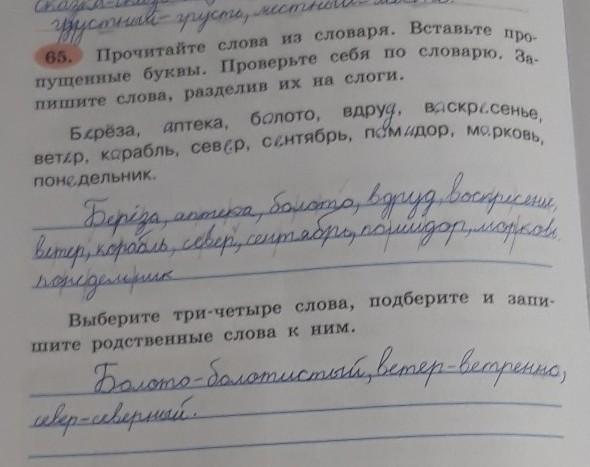 грустный-грусть, местный-
65. Прочитайте слова из словаря. Вставьте про-
пущенные буквы. Проверьте себя по словарю. За-
пишите слова, разделив их на слоги.
Берёза, аптека, болото, вдруд, воскресенье,
ветер, корабль, север, сентябрь, помидор, морковь,
понедельник.
Берёза, аптека, болото, вдруд, воскресение,
ветер, корабль, север, сентябрь, помидор, морковь.
понедельник
Выберите три-четыре слова, подберите и запи-
шите родственные слова к ним.
Болото-болотистый, ветер-ветренно,
север-северный.